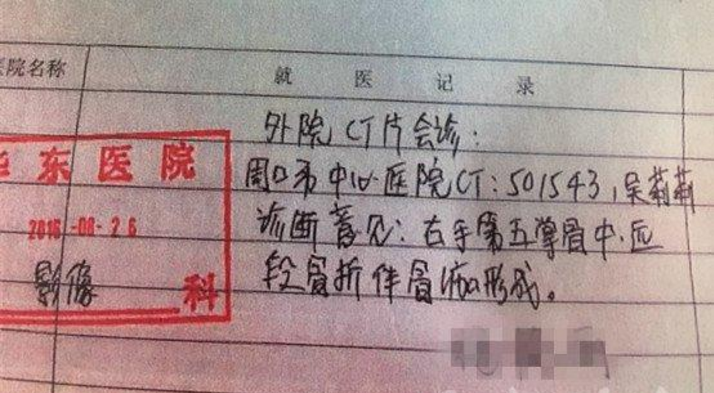 医院名称
就医记录
外院CT片会诊：
华东医院
周口市中心医院CT：501543，吴莉莉
2016-08-26
诊断意见：右手第五掌骨中远
影像 科
段骨折伴骨痂形成。